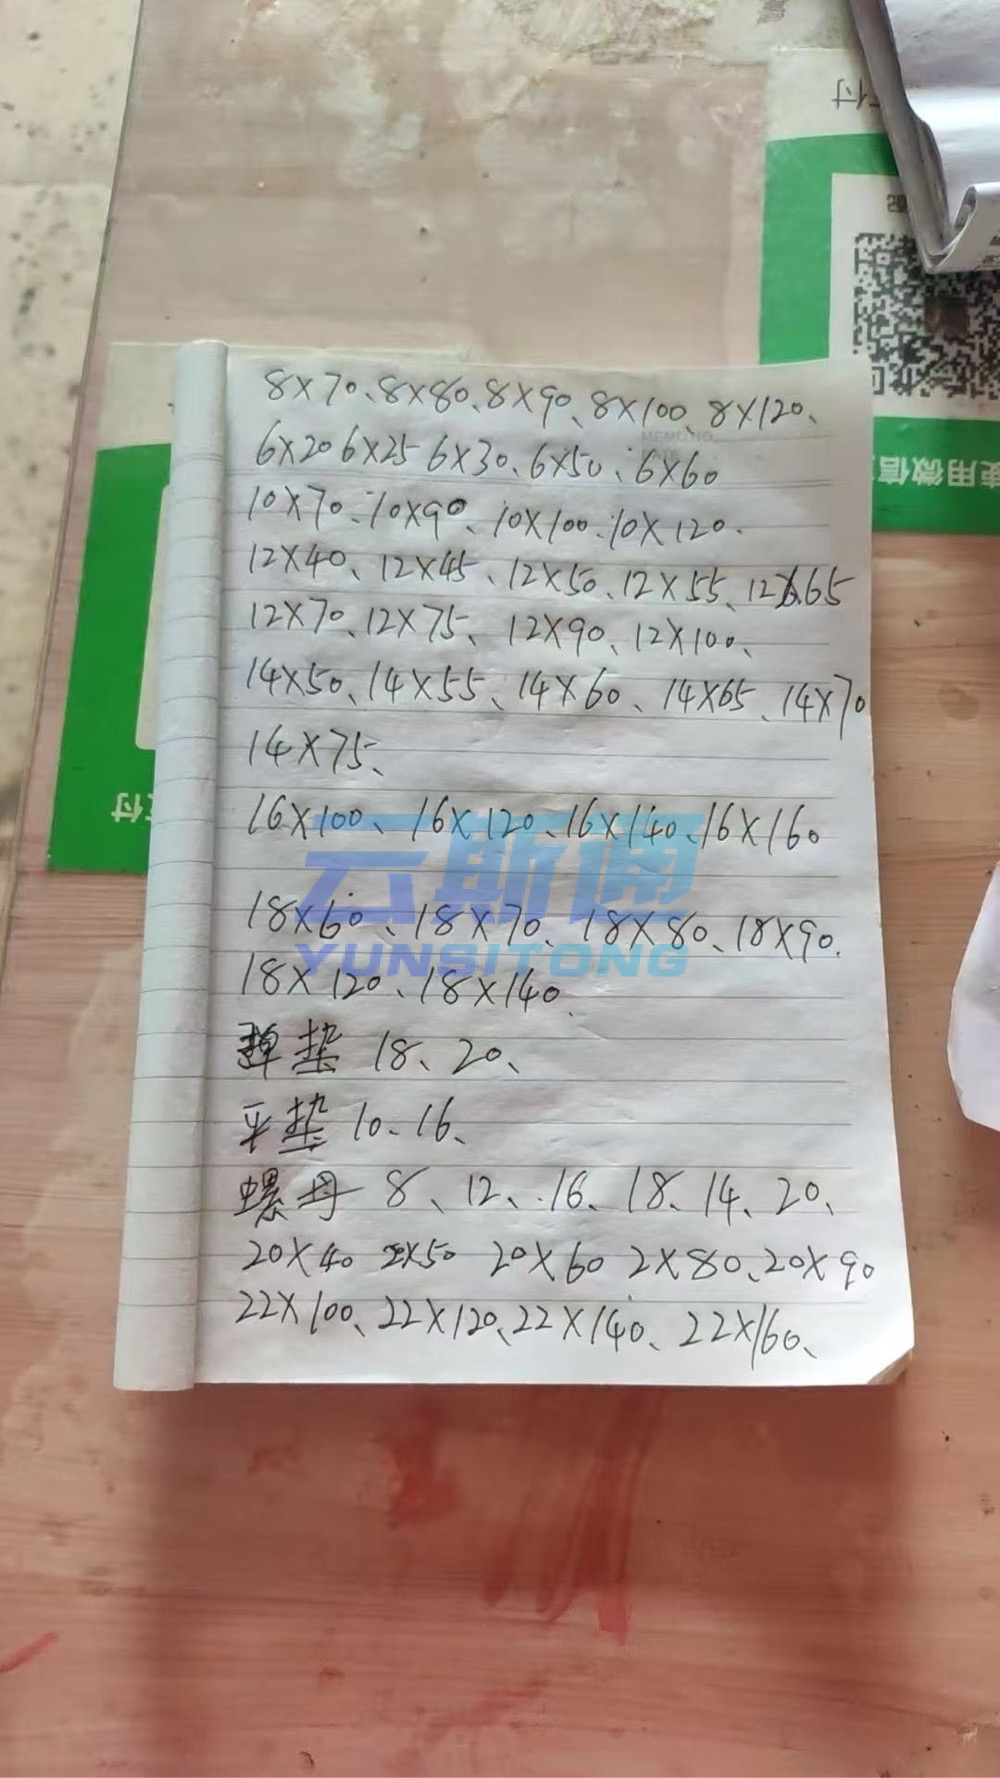 付
使用微信
付
MEMO NO.
8×70、8×80、8×90、8×100、8×120、
6×20 6×25 6×30、6×50、6×60
10×70、10×90、10×100、10×120.
12×40、12×45、12×50、12×55、12×65
12×70、12×75、12×90、12×100、
14×50、14×55、14×60、14×65、14×70
14×75、
16×100、16×120、16×140、16×160
云斯通
18×60、18×70、18×80、18×90.
YUNSITONG
18×120、18×140
弹垫 18、20、
平垫 10、16、
螺母 8、12、16、18、14、20、
20×40 20×50 20×60 2×80、20×90
22×100、22×120、22×140、22×160、